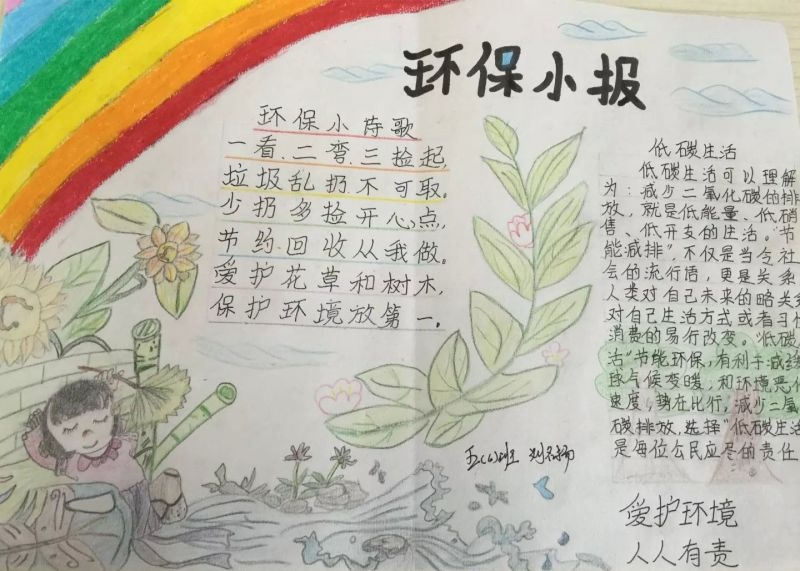 环保小报
环保小诗歌
一看、二弯、三捡起,
垃圾乱扔不可取。
少扔多捡开心点,
节约回收从我做。
爱护花草和树木,
保护环境放第一。
低碳生活
低碳生活可以理解
为:减少二氧化碳的排
放,就是低能量、低硝
售、低开支的生活。“节
能减排”,不仅是当今社
会的流行语,更是关系
人类对自己未来的略关系
对自己生活方式或者习
消费的易行改变。“低碳
活”节能环保,有利于减
球气候变暖,和环境恶
速度,势在比行,减少二氧
碳排放,选择“低碳生活
是每位公民应尽的责任
五(6)班
爱护环境
人人有责